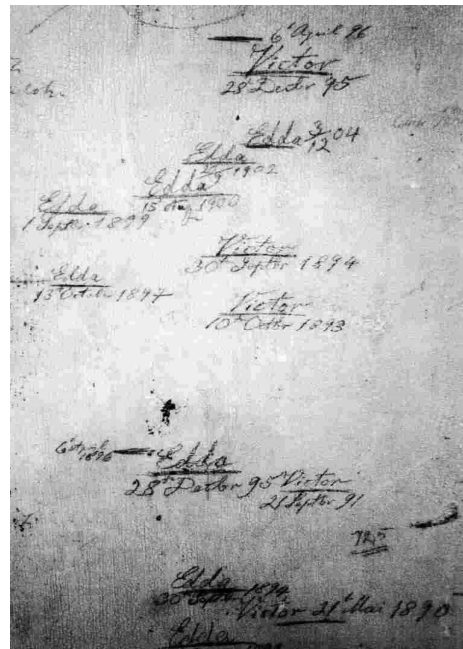 6t April 96
Victor
28t Decbr 95
Edda 3/12 04
Edda
1902
Edda
15 Aug 1900
Edda
1 Septbr 1899
Victor
30t Septbr 1894
Edda
13 October 1897
Victor
10t Octbr 1893
6t April
1896
Edda
28t Decbr 95
Victor
21 Septbr 91
72,5
Edda
30t Septbr 1894
Victor 21t Mai 1890
Edda